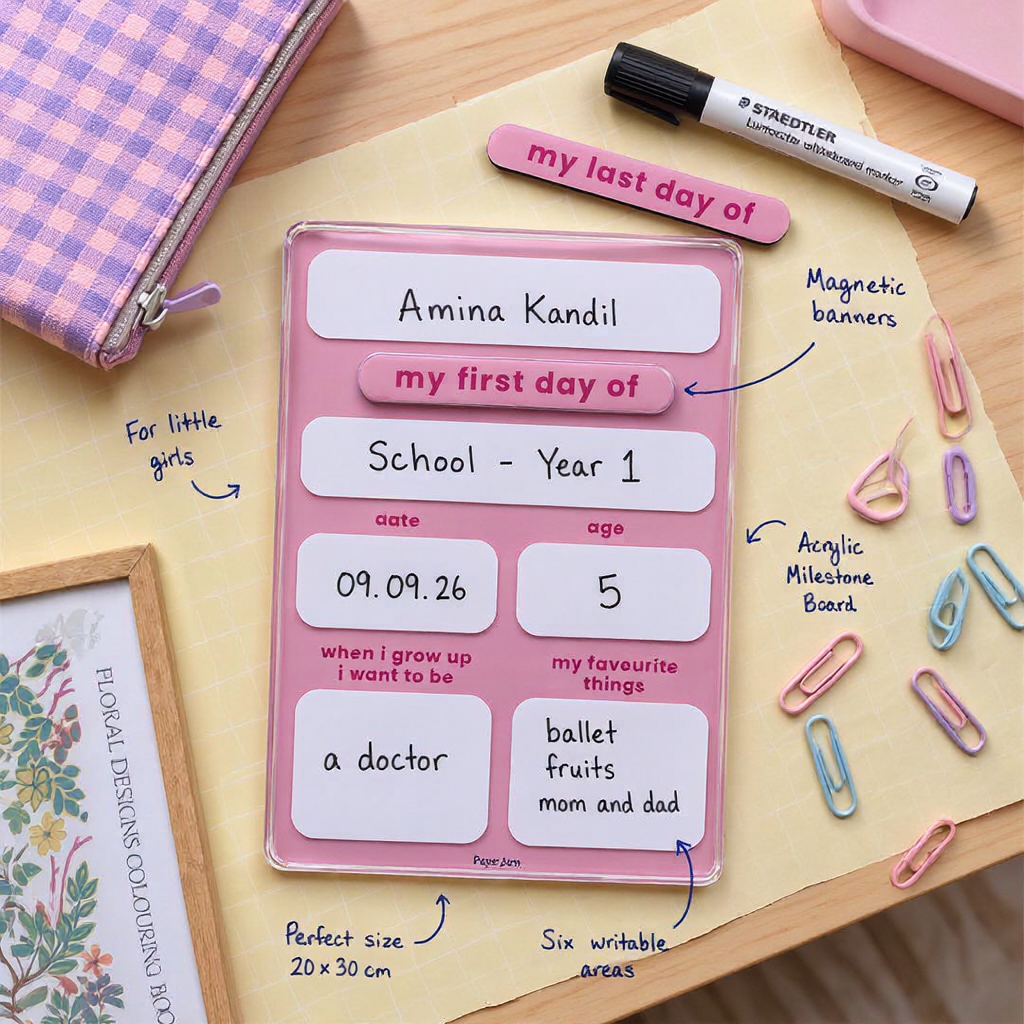 STAEDTLER
my last day of
Magnetic
banners
Amina Kandil
my first day of
For little
girls
School - Year 1
date
age
09.09.26
5
Acrylic
Milestone
Board
when i grow up
i want to be
my favourite
things
a doctor
ballet
fruits
mom and dad
FLORAL DESIGNS COLOURING
Perfect size
20 x 30 cm
Six writable
areas